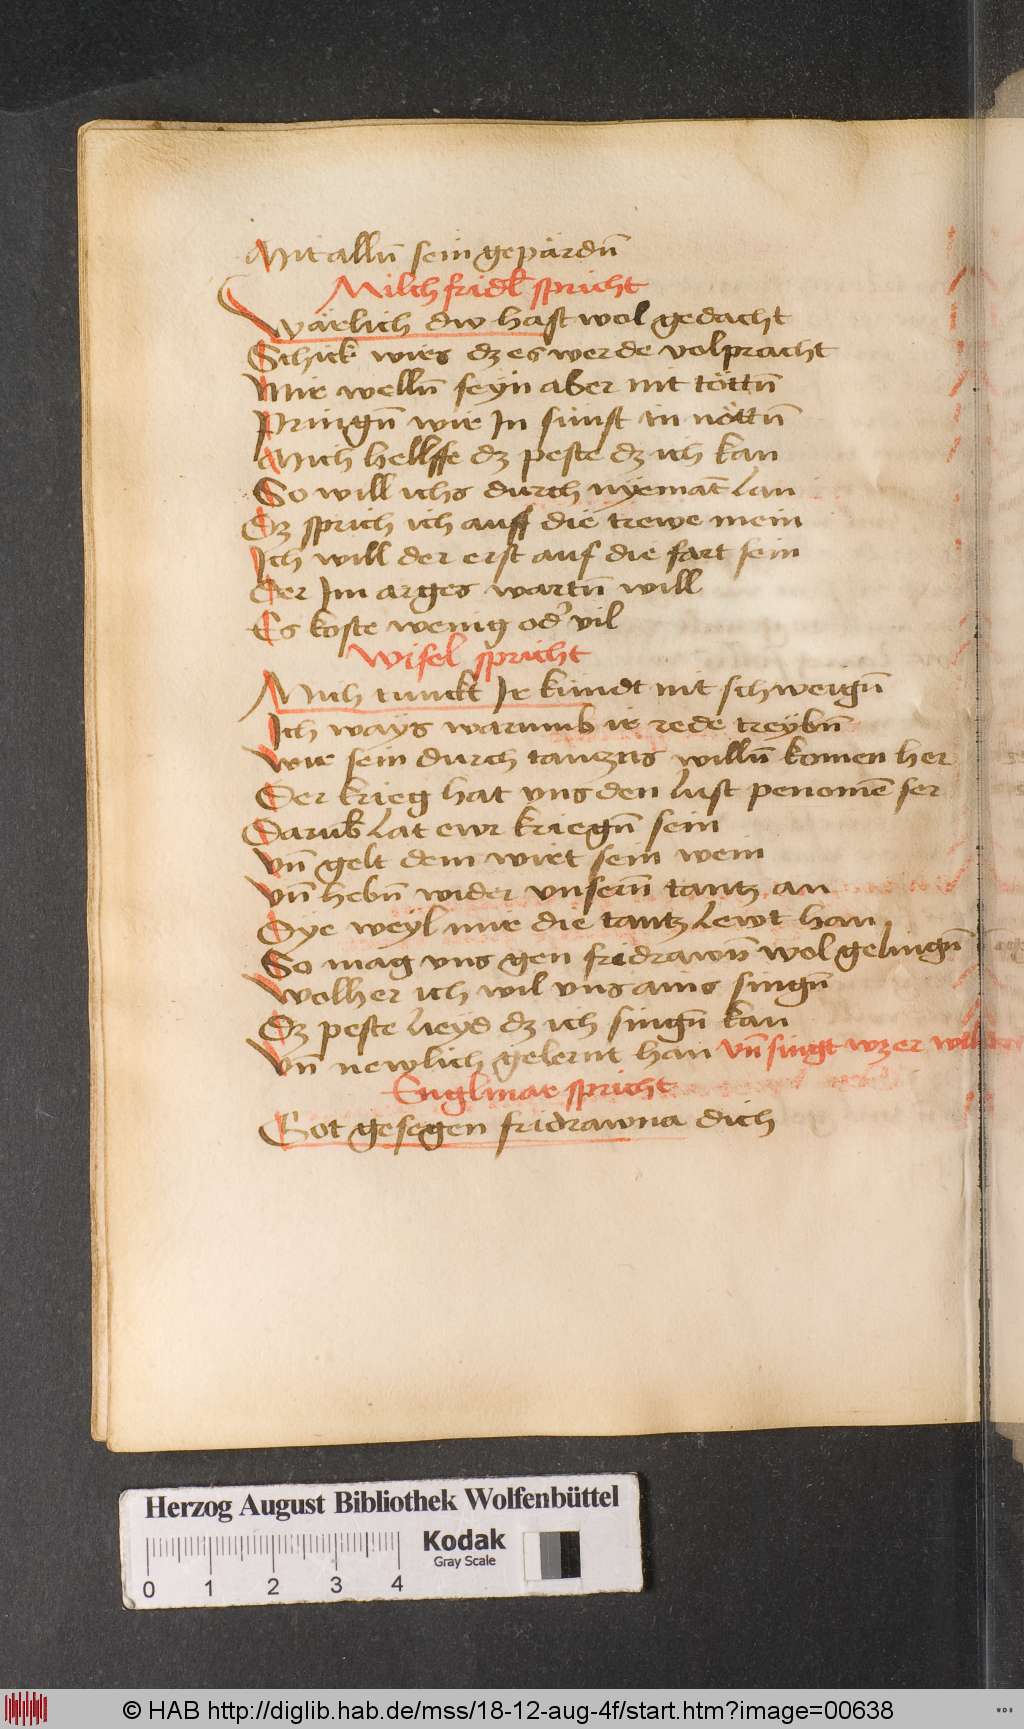 Mit allñ sein gepärdñ
Milchfridl spricht
Wärlich dw hast wol gedacht
Schick wirs dz es werde volpracht
Mir wellñ seyn aber nit töttñ
Pringñ wir In sünst in nöttñ
Mich hellffe dz peste dz ich kan
So will ichs durch nyemāt lan
Dz sprich ich auff die trewe mein
Ich will der erst auf die fart sein
Der Im arges wartñ will
Es koste wenig od' vil
Wisel spricht
Mich tunckt Ir kündt nit schweigñ
Ich ways warumb ir rede treybñ
Wir sein durch tanzns willñ komen her
Der krieg hat vns den lust penomē ser
Darub̄ lat ewr kriegñ sein
Vñ gelt dem wirt sein wein
Vñ hebñ wider vnserñ tantz an
Dye weyl mir die tantz lewt han
So mag vns gen fridrawñ wol gelingñ
Wolher ich wil vns ains singñ
Dz peste lieyd dz ich singñ kan
Vñ newlich gelernt han vñ singt wz er wil
Englmar spricht
Got gesegen fridrawna dich
Herzog August Bibliothek Wolfenbüttel
Kodak
Gray Scale
0 1 2 3 4
© HAB http://diglib.hab.de/mss/18-12-aug-4f/start.htm?image=00638